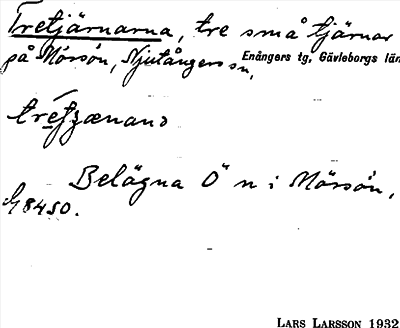 Tretjärnarna, tre små tjärnar
på Mössön, Njutångers sn, Enångers tg, Gävleborgs län
Belägna Ö n i Mössön,
G 8450.
LARS LARSSON 1932